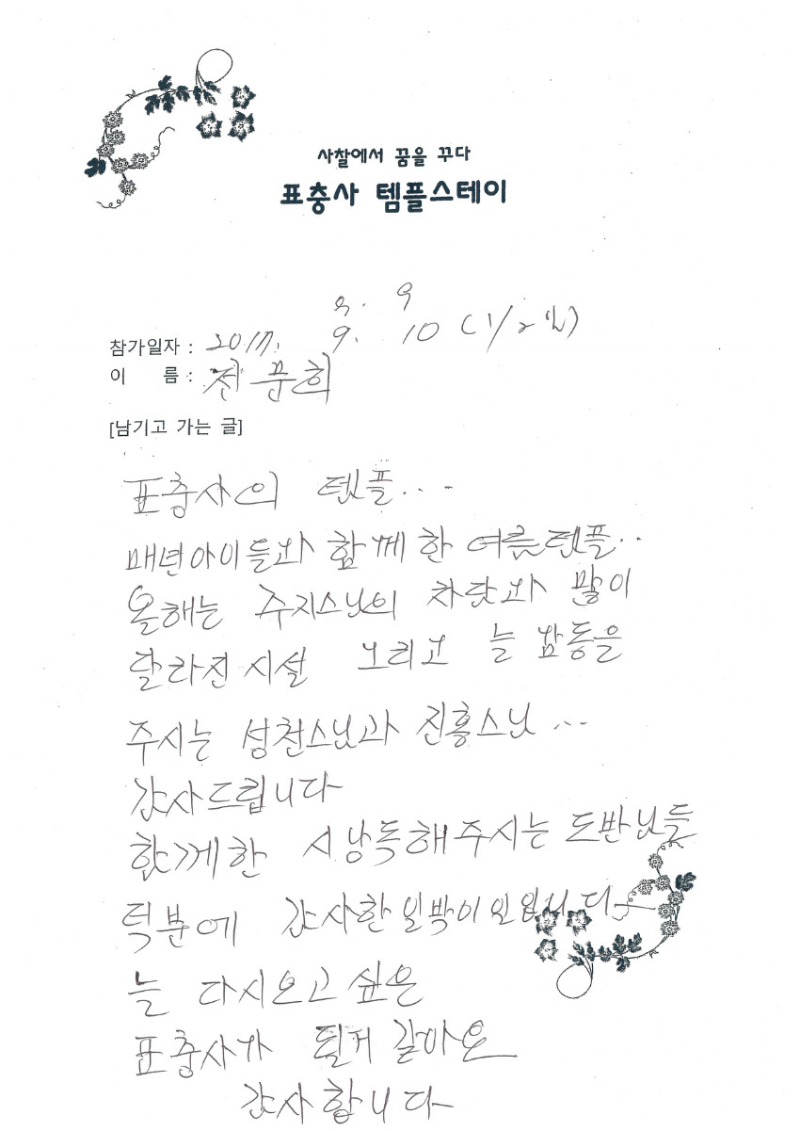 사찰에서 꿈을 꾸다
표충사 템플스테이
9. 9
참가일자 : 2017. 9. 10 (1/2일)
이 름 : 문희
[남기고 가는 글]
표충사의 템플...
매년아이들과 함께 한 여름템플..
올해는 주지스님의 차담과 많이
달라진 시설 그리고 늘 감동을
주시는 성천스님과 진흥스님...
감사드립니다
함께한 낭독해주시는 도반님들
덕분에 감사한 일박이일입니다
늘 다시오고 싶은
표충사가 될거 같아요
감사합니다